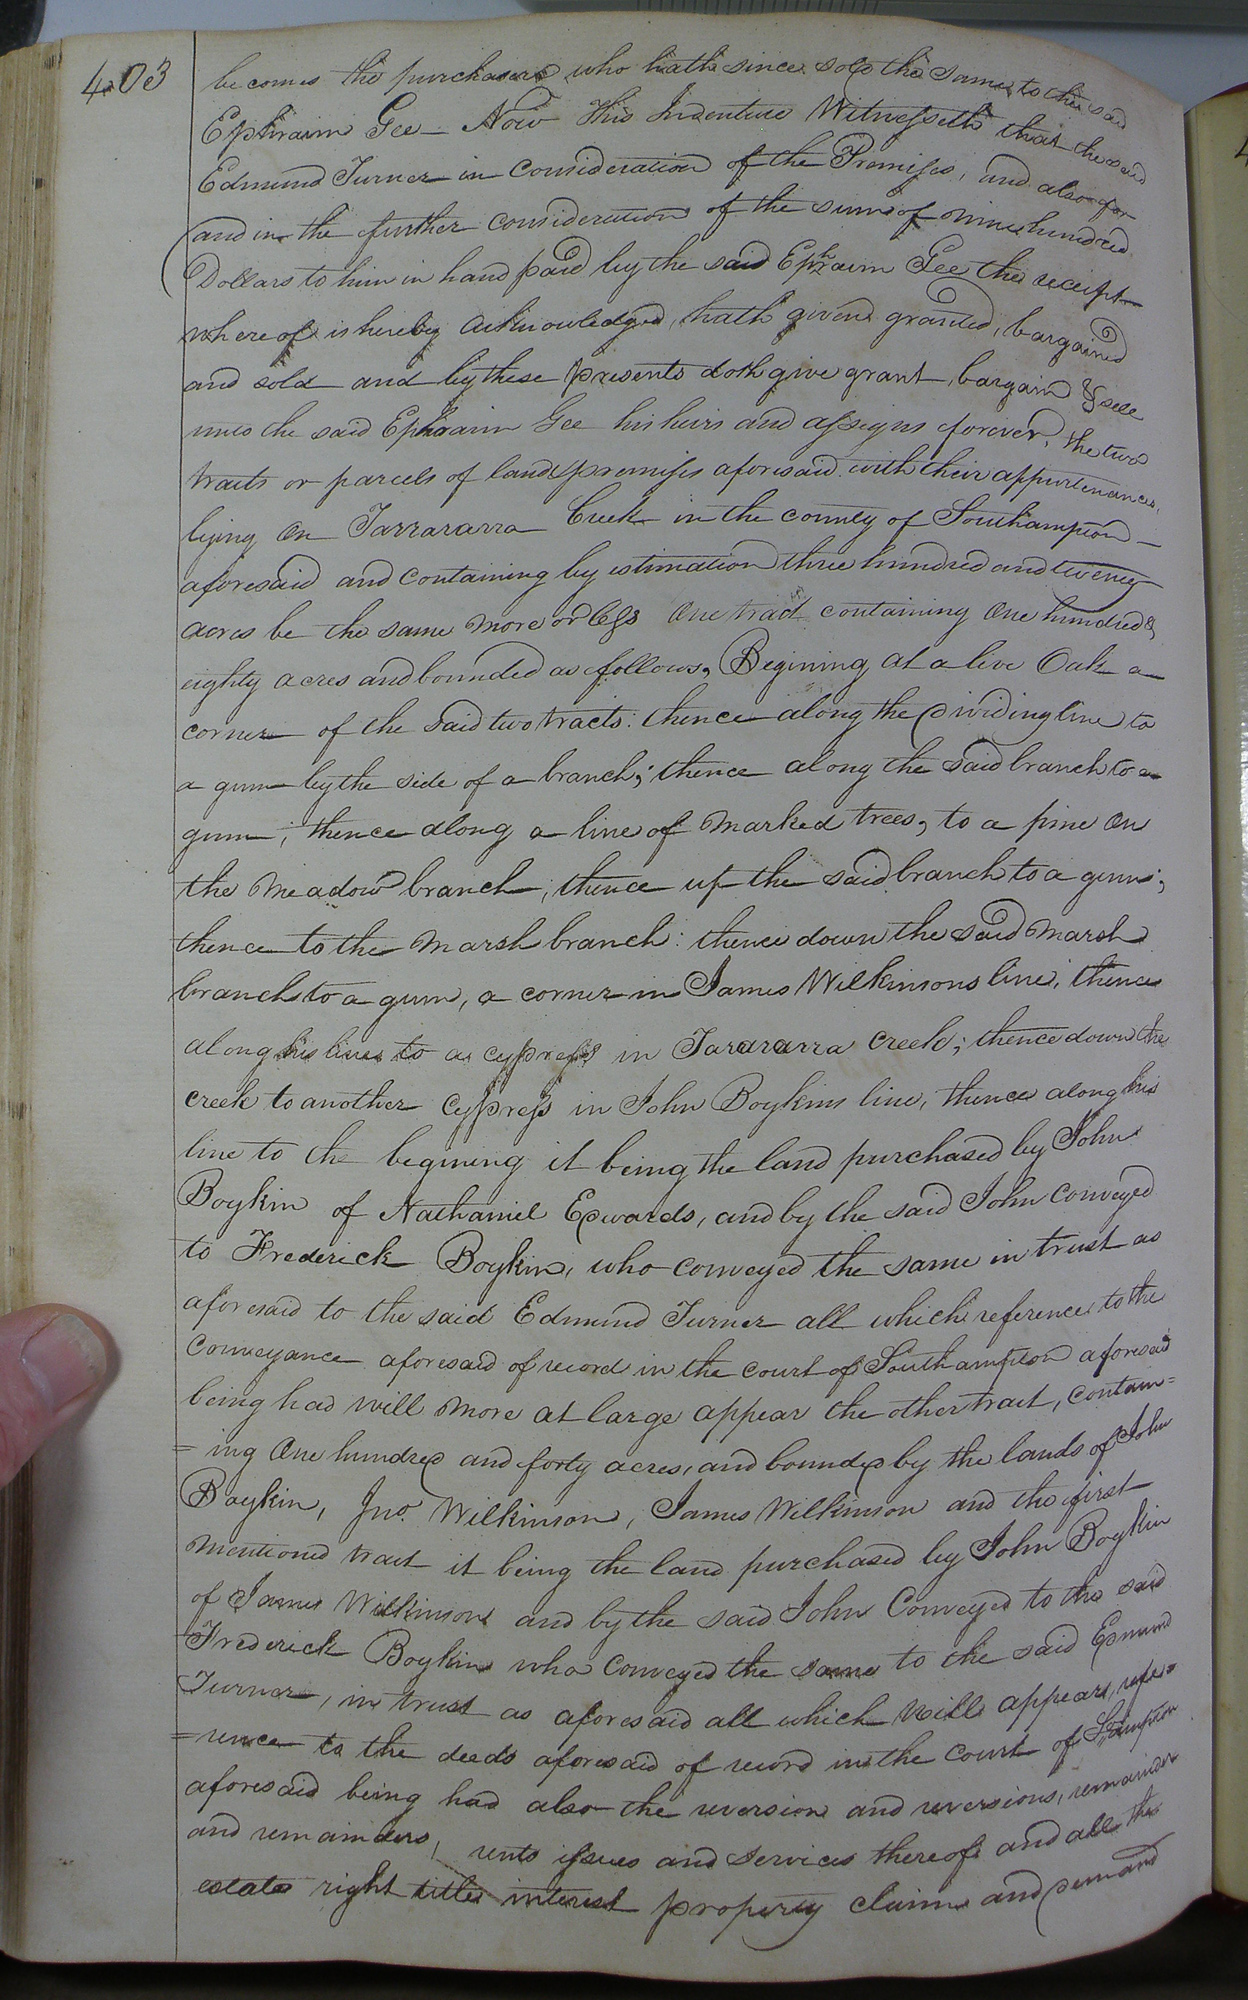 403
becomes the purchasers who hath since sold the same to the said
Ephraim Gee – Now This Indenture Witnesseth that the said
Edmund Turner in consideration of the Premisses, and also for
and in the further consideration of the sum of nine hundred
Dollars to him in hand paid by the said Ephraim Gee the receipt
whereof is hereby acknowledged, hath given granted, bargained
and sold and by these presents doth give grant, bargain & sell
unto the said Ephraim Gee his heirs and assigns forever, the two
tracts or parcels of land & premisses aforesaid with their appurtenances,
lying On Tarrararra Creek in the county of Southampton –
aforesaid and containing by estimation three hundred and twenty
acres be the same more or less One tract containing One hundred &
eighty acres and bounded as follows, Begining at a live Oak a
corner of the said two tracts: thence along the dividing line to
a gum by the side of a branch; thence along the said branch to a
gum; thence along a line of marked trees, to a pine On
the Meadow branch; thence up the said branch to a gum;
thence to the Marsh branch: thence down the said Marsh
branch to a gum, a corner in James Wilkinsons line, thence
along his line to a cypress in Tarararra creek; thence down the
creek to another Cypress in John Boykins line, thence along his
line to the begining it being the land purchased by John
Boykin of Nathaniel Edwards, and by the said John conveyed
to Frederick Boykin, who conveyed the same in trust as
aforesaid to the said Edmund Turner all which reference to the
Conveyance aforesaid of record in the court of Southampton aforesaid
being had will more at large appear the other tract, contain=
=ing One hundred and forty acres, and bounded by the lands of John
Boykin, Jno. Wilkinson, James Wilkinson and the first
mentioned tract it being the land purchased by John Boykin
of James Wilkinson and by the said John Conveyed to the said
Frederick Boykin who conveyed the same to the said Edmund
Turner, in trust as aforesaid all which will appear, refe=
=rence to the deeds aforesaid of record in the court of S.ampton
aforesaid being had also the reversion and reversions, remainder
and remainders, rents issues and services thereof and all the
estate right title interest property claim and demand